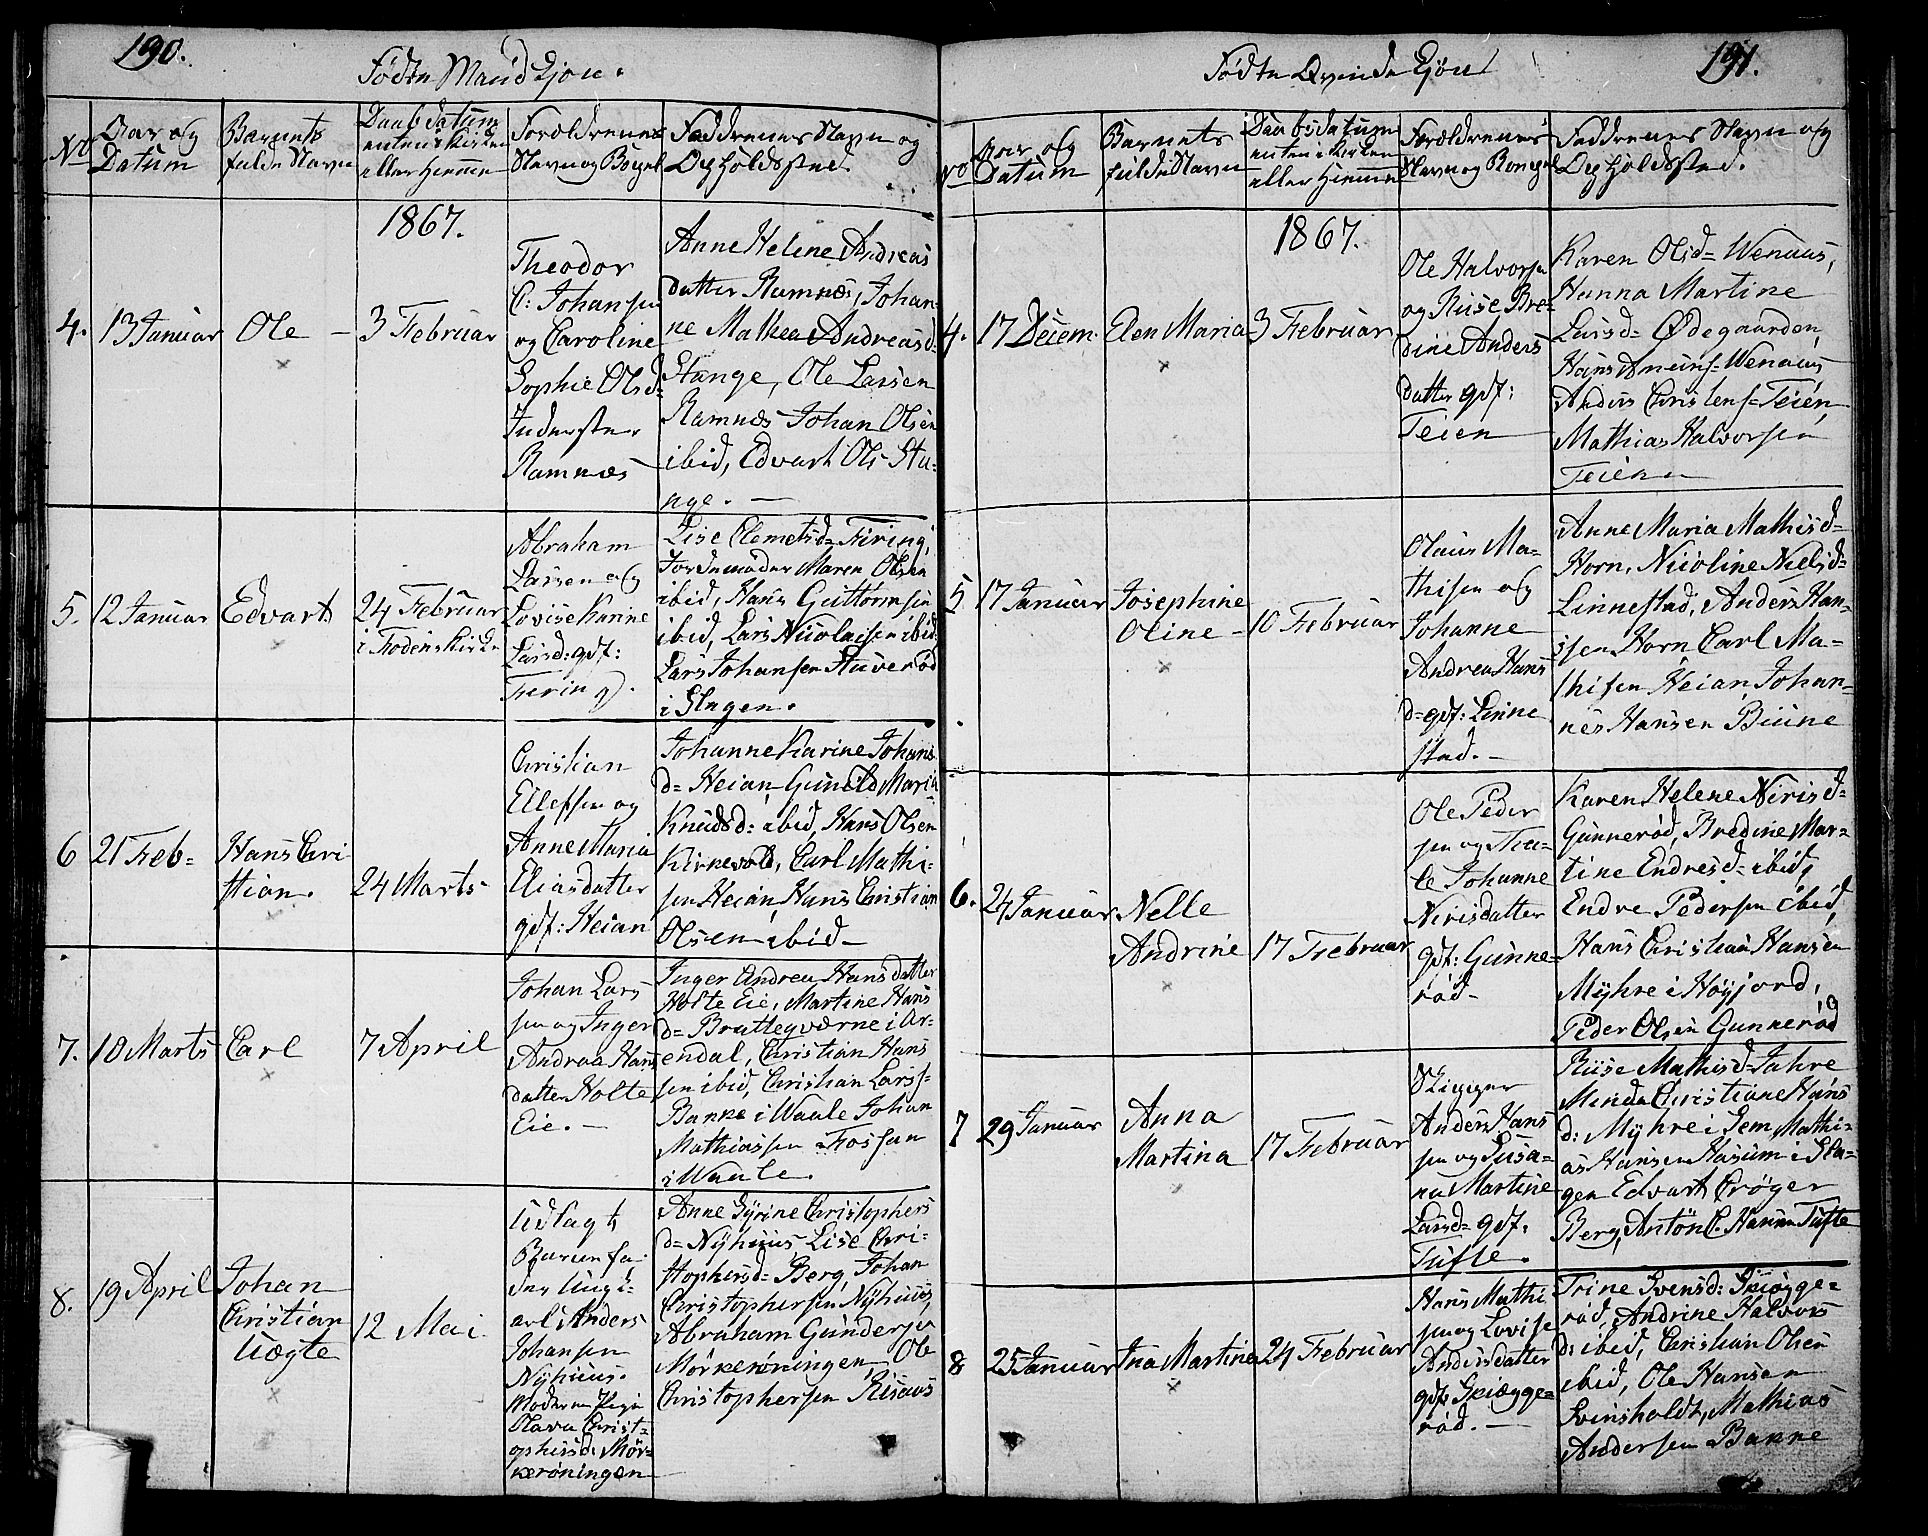 190.
Fødte Mandkjøn.
No
Aar og
Datum
Barnets
fulde Navn
Daabsdatum
enten i Kirken
eller Hjemme
Forældrenes
Navn og Borgel
Faddrenes Navn og
Opholdssted.
1867.
4.
13 Januar
Ole
3 Februar
Theodor
C: Johansen
og Caroline
Sophie Olsd=
Inderster
Ramnæs
Anne Helene Andreas
datter Ramnæs, Johan-
ne Mathea Andreasd=
Stange, Ole Larsen
Ramnæs Johan Olsen
ibid, Edvart Ols- Sta-
nge.
5.
12 Januar
Edvart
24 Februar
i Fodenskirke
Abraham
Larsen og
Lovise Karine
Larsd: gdf:
Firing.
Lise Clemetsd= Firing,
Jordemoder Maren Olsen
ibid, Hans Guttormsen
ibid, Lars Nicolaisen ibid
Lars Johansen Stuverød
i Slagen.
6
21 Feb-
Hans Chri
stian.
24 Marts
Christian
Ellefsen og
Anne Maria
Eliasdatter
gdf: Heian
Johanne Karine Johans
d= Heian Gunild Maria
Knudsd: ibid, Hans Olsen
Kirkevold, Carl Mathi-
sen Heian, Hans Christian
Olsen ibid
7.
10 Marts
Carl
7 April
Johan Lars
sen og Inger
Andrea Hans
datter Holte
Eie.
Inger Andrea Hansdatter
Holte Eie, Martine Hans
d= Bratteqværne i Ar-
endal, Christian Hans
sen ibid, Christian Larss=
Bakke i Waale Johan
Mathiassen Fossan
i Waale.
8.
19 April
Johan
Christian
Uægte
12 Mai
Udlagt
Barnefa-
der Ungk-
arl Anders
Johansen
Nyhuus.
Moderen Pige
Olava Christ-
ophersd: Mør-
kerøningen
Anne Gyrine Christophers
d= Nyhuus, Lise Chri-
stophersd= Berg, Johan
Christophersen Nyhuus,
Abraham Gundersen
Mørkerøningen, Ole
Christophersen Risaas
191.
Fødte Qvindekjøn
No
Aar og
Datum
Barnets
fulde Navn
Daabsdatum
enten i Kirken
eller Hjemme
Forældrenes
Navn og Borgel
Faddrenes Navn og
Opholdssted.
1867.
4.
17 Decem.
Elen Maria
3 Februar
Ole Halvorsen
og Riise Bre-
dine Anders
datter gdf:
Teien
Karen Olsd= Wenaas,
Hanna Martine
Larsd= Ødegaarden,
Hans Amunds= Wenaas
Anders Christens= Teien,
Mathias Halvorsen
Teien
5
17 Januar
Josephine
Oline
10 Februar
Olaus Ma-
thisen og
Johanne
Andrea Hans
d= gdf: Linne
stad.
Anne Maria Mathisd=
Horn, Nicoline Nielsd=
Linnestad, Anders Han-
sen Horn Carl Ma-
thisen Heian Johan-
nes Hansen Biune
6.
24 Januar
Nelle
Andrine
17 Februar
Ole Peder
sen og Tha-
le Johanne
Nirisdatter
gdf: Gunne-
rød
Karen Helene Nirisd=
Gunnerød, Bredine Mar-
tine Endresd= ibid,
Endre Pedersen ibid,
Hans Christian Hansen
Myhre i Høyjord,
Peder Olsen Gunnerød
7
29 Januar
Anna
Martina
17 Februar
Skipper
Anders Hans
sen og Susa-
na Martine
Larsd= gdf:
Tufte.
Riise Mathisd= Jahre
Minda Christiane Hans
d: Myhre i Sem Mathi-
as Hansen Hasum i Sla-
gen Edvart Crøger
Berg, Anton C. Hansen Tufte
8
25 Januar
Ina Martine
24 Februar
Hans Mathi
sen og Lovise
Andersdatter
gdf: Skiægge-
rød.
Trine Svensd: Skiægge-
rød, Andrine Halvors
d: ibid, Christian Olsen
ibid, Ole Hansen
Svinsholdt, Mathias
Andersen Bakke